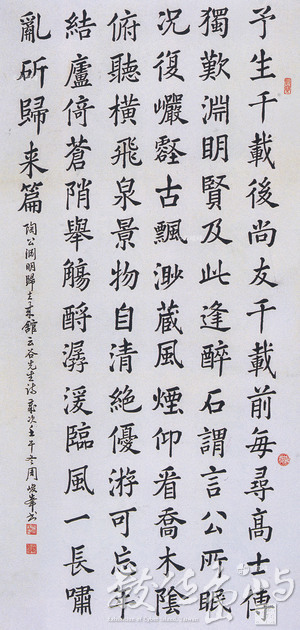 予生千載後尚友千載前每尋高士傳
獨歎淵明賢及此逢醉石謂言公所眠
況復巖壑古飄渺藏風煙仰看喬木陰
俯聽橫飛泉景物自清絕優游可忘年
結廬倚蒼陗舉觴酹潺湲臨風一長嘯
亂斫歸来篇
陶公淵明歸去來館 云谷先生詩 歲次壬午 周峻華書